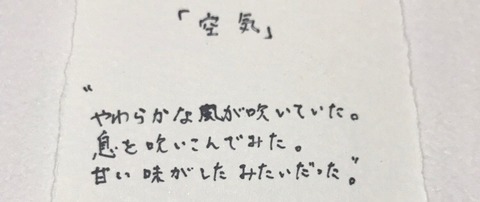 「空気」
“
やわらかな風が吹いていた。
息を吹いこんでみた。
甘い味がした みたいだった。”